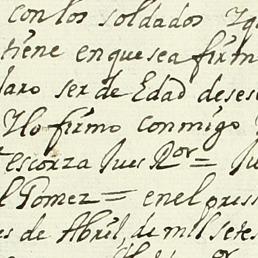 con los soldados Yq
tiene en que sea firm
laro ser de Edad dese
Ylo firmo conmigo
escorza Jues Ror =
l Gomez = en el pres
es de Abril, de mil sete